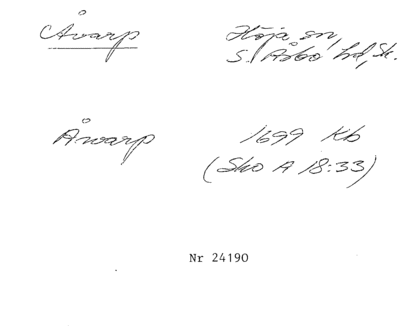 Åvarp Höja sn,
S. Åsbo hd, Sk.
Åwarp 1699 Kb
(Sko A 18:33)
Nr 24190